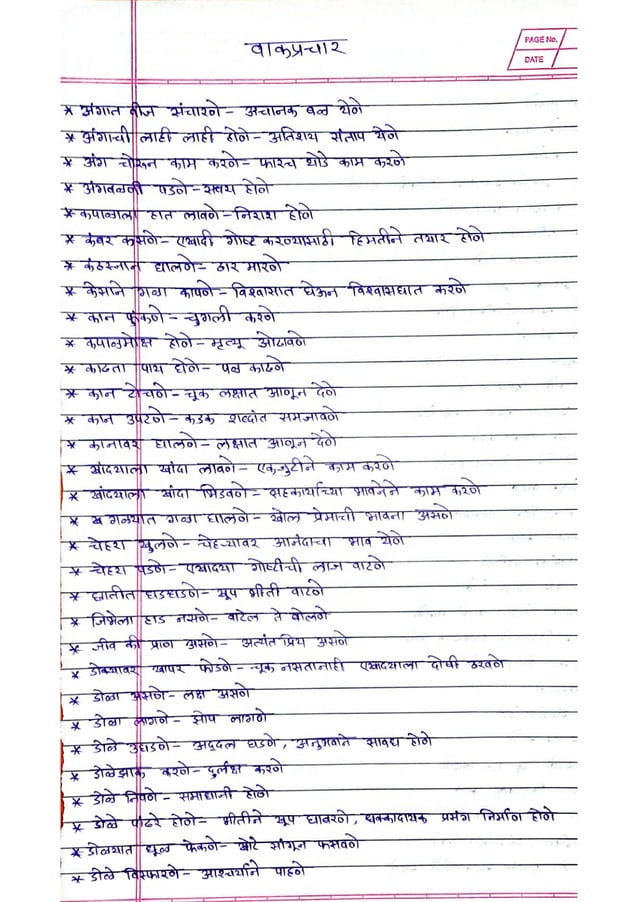 वाकप्रचार
PAGE No.
DATE
* अंगात वीज संचारणे - अचानक बळ येणे
* अंगाची लाही लाही होणे - अतिशय संताप येणे
* अंग चोरून काम करणे - फारच थोडे काम करणे
* अंगवळणी पडणे - सवय होणे
* कपाळाला हात लावणे - निराश होणे
* कंबर कसणे - एखादी गोष्ट करण्यासाठी हिमतीने तयार होणे
* कंठस्नान घालणे - ठार मारणे
* केसाने गळा कापणे - विश्वासात घेऊन विश्वासघात करणे
* कान फुंकणे - चुगली करणे
* कपाळमोक्ष होणे - मृत्यू ओढावणे
* काढता पाय घेणे - पळ काढणे
* कान टोचणे - चूक लक्षात आणून देणे
* कान उपटणे - कडक शब्दांत समजावणे
* कानावर घालणे - लक्षात आणून देणे
* खांदयाला खांदा लावणे - एकजुटीने काम करणे
* खांदयाला खांदा भिडवणे - सहकार्याच्या भावनेने काम करणे
* गळ्यात गळा घालणे - खोल प्रेमाची भावना असणे
* चेहरा खुलणे - चेहऱ्यावर आनंदाचा भाव येणे
* चेहरा पडणे - एखादया गोष्टीची लाज वाटणे
* छातीत धडधडणे - खूप भीती वाटणे
* जिभेला हाड नसणे - वाटेल ते बोलणे
* जीव की प्राण असणे - अत्यंत प्रिय असणे
* डोक्यावर खापर फोडणे - चूक नसतानाही एखादयाला दोषी ठरवणे
* डोळा असणे - लक्ष असणे
* डोळा लागणे - झोप लागणे
* डोळे उघडणे - अद्दल घडणे, अनुभवाने सावध होणे
* डोळेझाक करणे - दुर्लक्ष करणे
* डोळे निवणे - समाधानी होणे
* डोळे पांढरे होणे - भीतीने खूप घाबरणे, धक्कादायक प्रसंग निर्माण होणे
* डोळ्यात धूळ फेकणे - खोटे सांगून फसवणे
* डोळे विस्फारणे - आश्चर्याने पाहणे